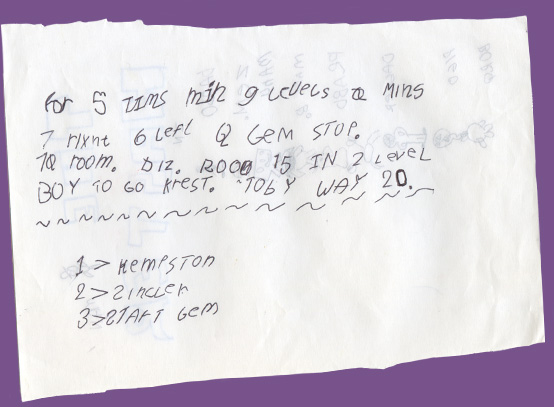 For 5 TIMS min 9 Levels Q MINS
7 rixnt 6 Left Q Gem STOP.
10 room. DIZ. ROOM 15 IN 2 Level
BOY TO GO KreST. TOBY WAY 20.
1 > KEMPSTON
2 > ZINCLER
3 > START Gem